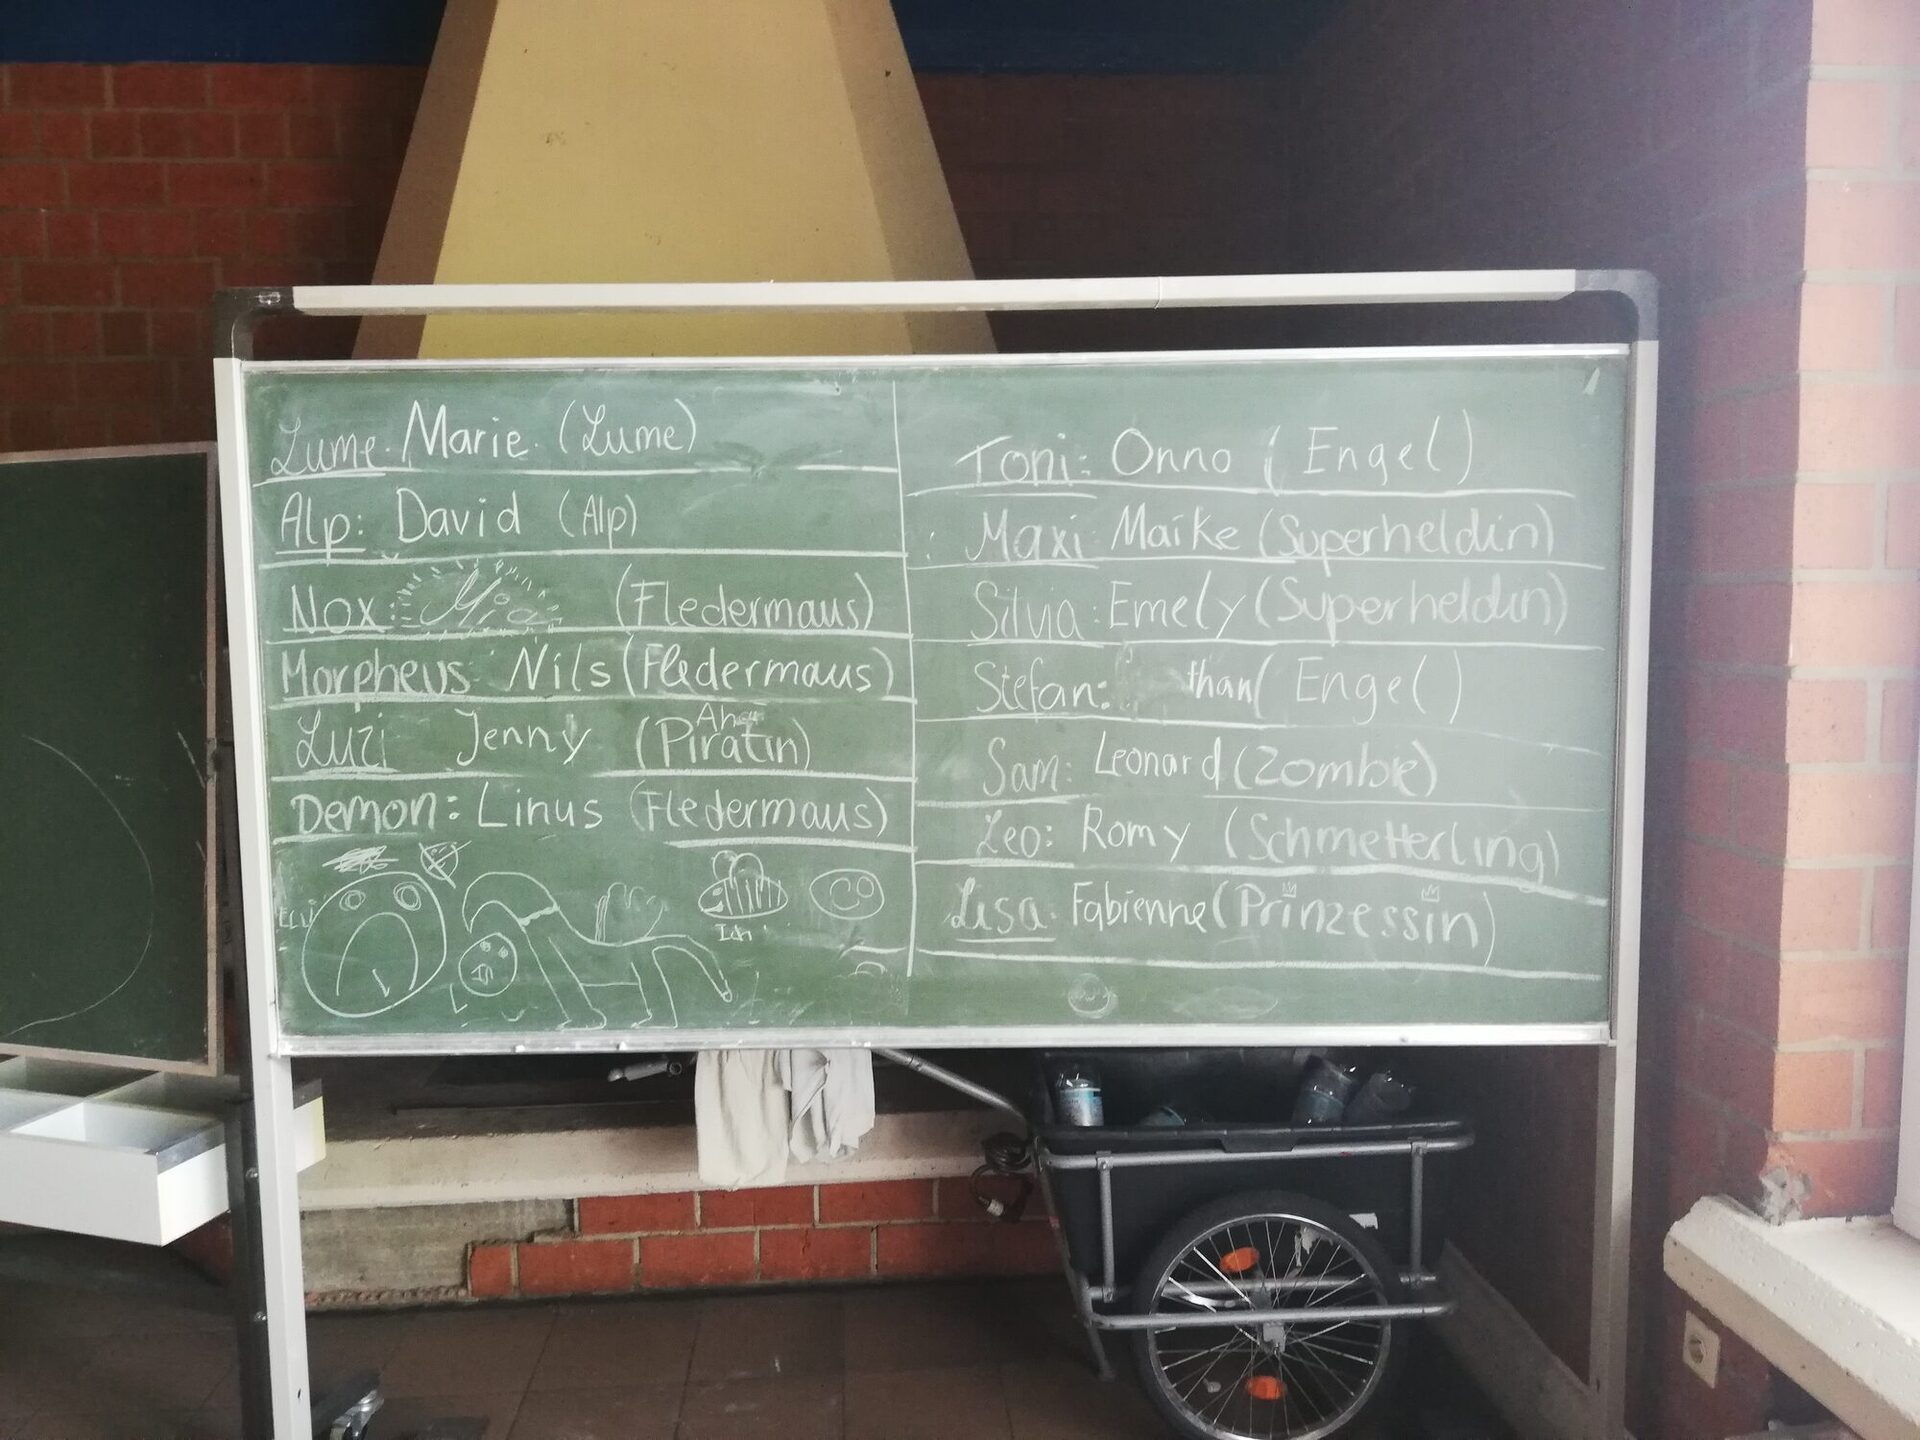 Lume. Marie. (Lume)
Alp: David (Alp)
Nox: Mia (Fledermaus)
Morpheus Nils (Fledermaus)
Luzi Jenny (Piratin)
Demon: Linus (Fledermaus)
Ich
Toni: Onno (Engel)
Maxi: Maike (Superheldin)
Silvia: Emely (Superheldin)
Stefan: than (Engel)
Sam: Leonard (Zombie)
Leo: Romy (Schmetterling)
Lisa. Fabienne (Prinzessin)